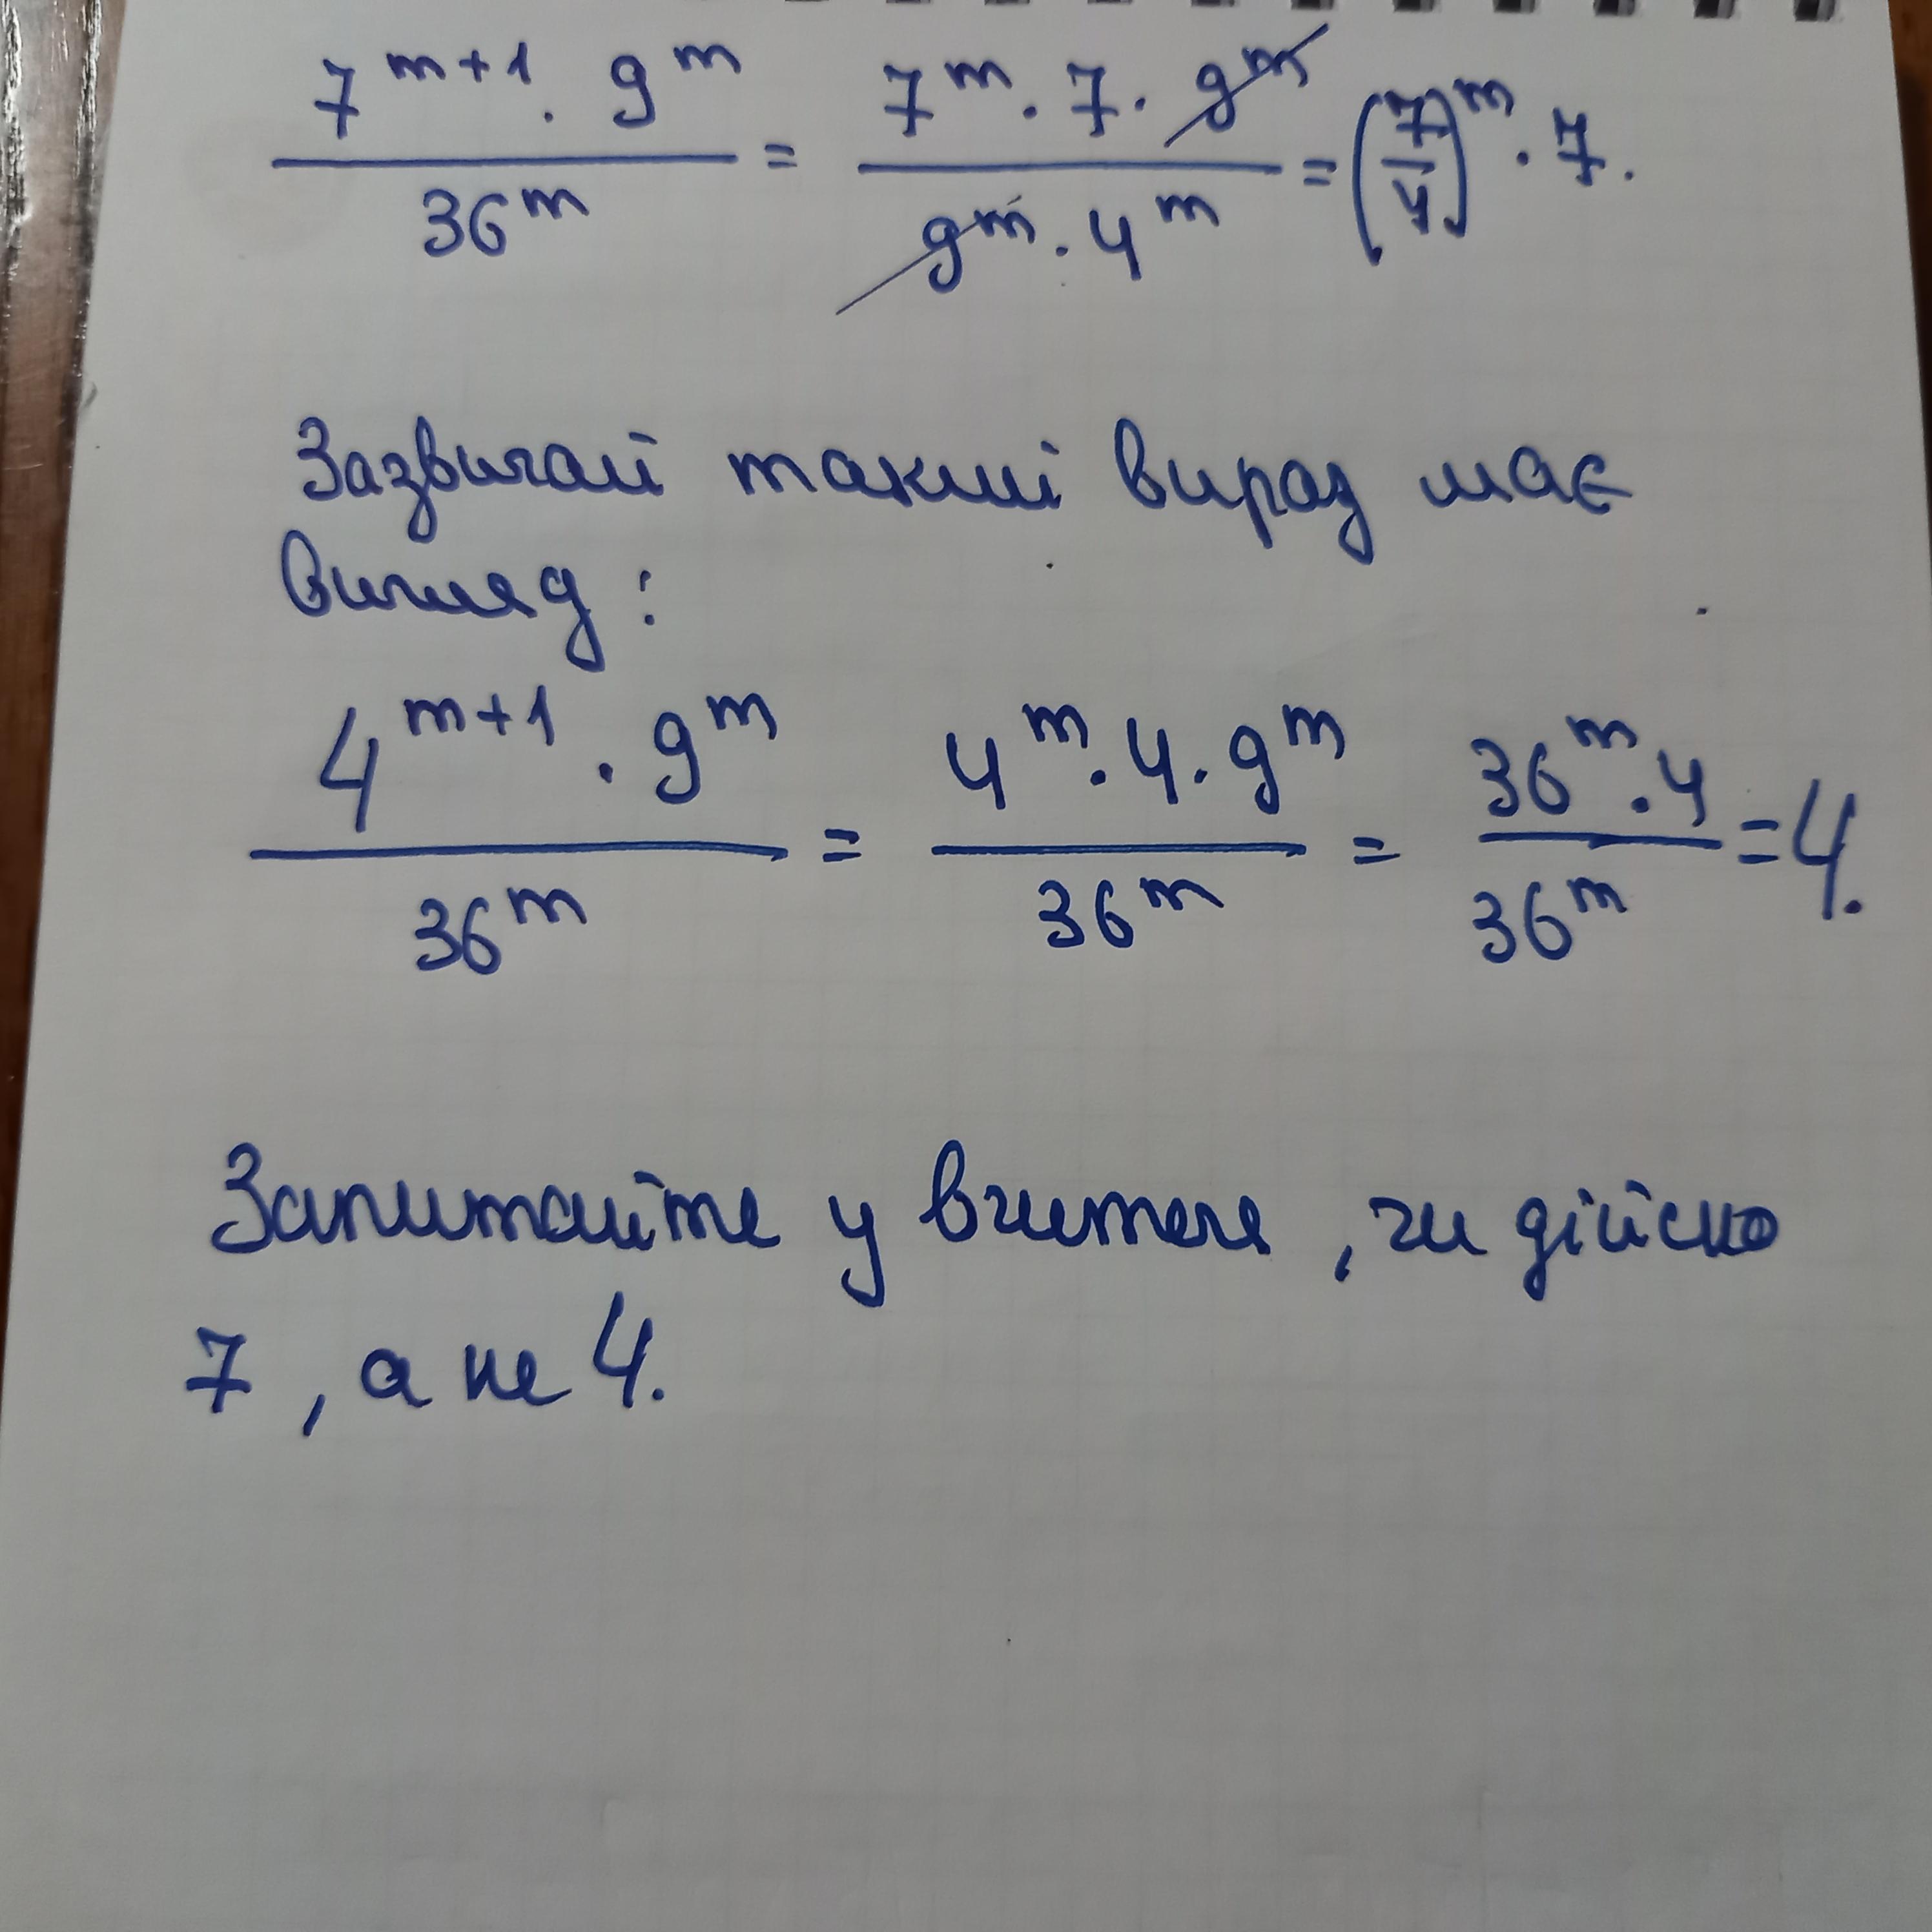 7^{m+1} · 9^m / 36^m = 7^m · 7 · 9^m / 9^m · 4^m = (7/4)^m · 7.
Зазвичай такий вираз має
вигляд:
4^{m+1} · 9^m / 36^m = 4^m · 4 · 9^m / 36^m = 36^m · 4 / 36^m = 4.
Запитайте у вчителя, чи дійсно
7, а не 4.